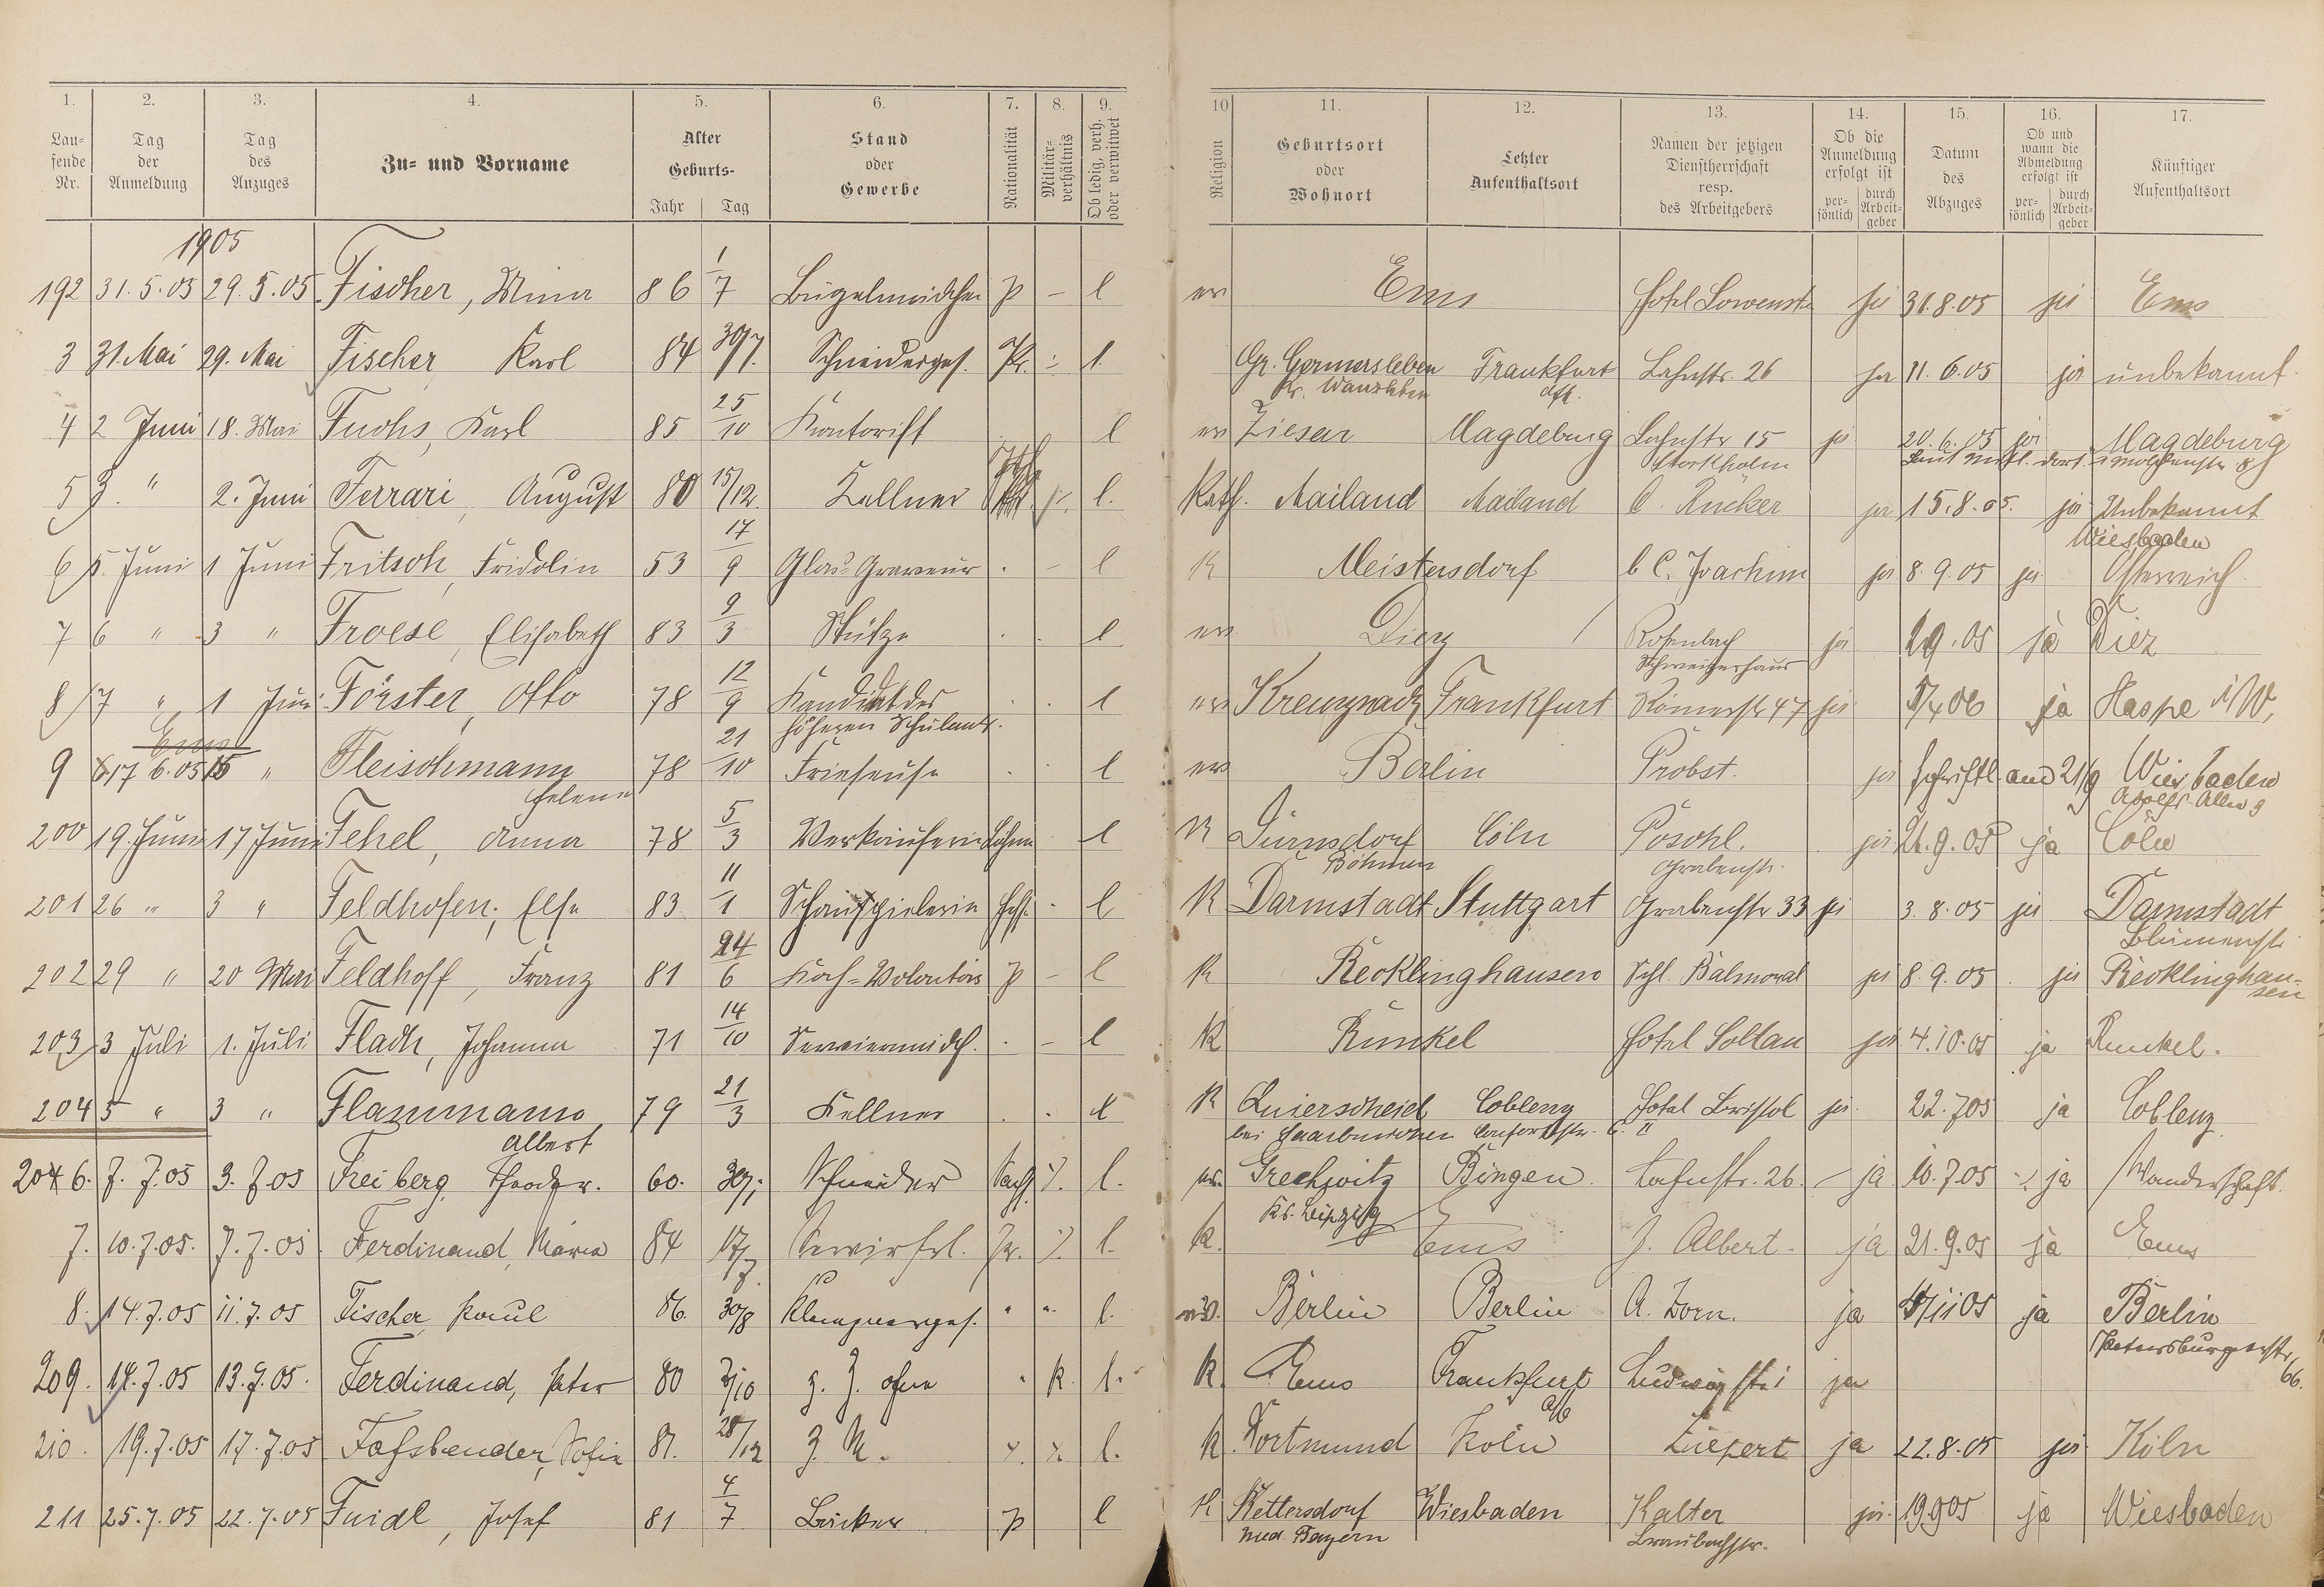 1. 2. 3. 4. 5. 6. 7. 8. 9. 10 11. 12. 13. 14. 15. 16. 17.
Lau-
fende
Nr.
Tag
der
Anmeldung
Tag
des
Anzuges
Zu- und Vorname
Alter
Geburts-
Jahr Tag
Stand
oder
Gewerbe
Nationalität
Militär-
verhältnis
Ob ledig, verh.
oder verwitwet
Religion
Geburtsort
oder
Wohnort
Letzter
Aufenthaltsort
Namen der jetzigen
Dienstherrschaft
resp.
des Arbeitgebers
Ob die
Anmeldung
erfolgt ist
per-
sönlich
durch
Arbeit-
geber
Datum
des
Abzuges
Ob und
wann die
Abmeldung
erfolgt ist
per-
sönlich
durch
Arbeit-
geber
Künftiger
Aufenthaltsort
1905
192 31.5.05 29.5.05 Fischer, Mina 86 1/7 Bügelmädchen p - l ev Ems Hotel Löwenst ja 31.8.05 ja Ems
3 31. Mai 29. Mai Fischer Karl 84 30/7. Schneiderges. Pr. l. Gr. Germersleben Frankfurt Lahnstr. 26 ja 11.6.05 ja unbekannt.
Kr. Wanzleben
4 2 Juni 18. Mai Fuchs, Karl 85 25/10 Kontorist l ev Ziesar Magdeburg Lahnstr 15 ja 20.6.05 ja Magdeburg
Stockholm
5 3. " 2. Juni Ferrari, August 80 15/12. Kellner l. Kath. Mailand Mailand C. Rücker ja 15.8.05. ja Unbekannt
Wiesbaden
6 5. Juni 1 Juni Fritsch, Fridolin 53 17/9 Glas-Graveur . - l K Meistersdorf b C. Joachim ja 8.9.05 ja Österreich.
7 6 " 3 " Froese, Elisabeth 83 9/3 Stütze . . l ev. Diez Rosenbach ja 29.05 ja Diez
Schweizerhaus
8 7 " 1 Juni Förster, Otto 78 12/9 Kandidat des . . l ev Kreuznach Frankfurt Römerstr 47 ja 5/4 06 ja Haspe i/W,
höheren Schulamt.
Ems
9 17 6.05 15 " Fleischmann 78 21/10 Friseuse . . l ev Berlin Probst. ja schriftl. aus 21/9 Wiesbaden
Helene
Adolfs-Allee 3
200 19. Juni 17 Juni Fehel, Anna 78 5/3 Verkäuferin Böhm l K Dürnsdorf Cöln Pöschl. ja 21.9.05 ja Cöln
Böhmen Grabenstr.
201 26 " 3 " Feldhofen, Else 83 11/1 Schauspielerin Hess. - l K Darmstadt Stuttgart Grabenstr 33 ja 3.8.05 ja Darmstadt
Blumenstr.
202 29 " 20 Mai Feldhoff, Franz 81 24/6 Koch-Volontär p - l K Recklinghausen Schl. Balmoral ja 8.9.05 . ja Recklinghau-
sen
203 3 Juli 1. Juli Fladh, Johanna 71 14/10 Serviermädch. . - l K Runkel Hotel Soltau ja 4.10.05 ja Runkel.
204 5 " 3 " Flammann 79 21/3 Kellner . . l K Quierscheid Coblenz Hotel Bristol ja. 22.7 05 ja Coblenz.
Albert bei Saarbrücken
204 6. 7. 7.05 3. 7 05 Freiberg Theodor. 60. 30/ Schneider Sachs. %. l. ev. Grechwitz Bingen. Lahnstr. 26. - ja 10.7.05 ja Wanderschaft.
Kr. Leipzig
7. 10.7.05. 7.7.05. Ferdinand, Maria 84 17/7. Servirfrl. Pr. %. l. k. Ems J. Albert. ja 21.9.05 ja Ems
8. 14.7.05 11.7.05 Fischer Paul 86. 30/8 Klempnerges. " " l. ev. Berlin Berlin A. Zorn. ja 4/11 05 ja Berlin
Petersburgerstr,
66.
209. 14.7.05 13.7.05. Ferdinand, Peter 80 2/10 z. Z. ohne " K. l. k. Ems Frankfurt Ludwigstr 1 ja
a/M
210. 19.7.05 17.7.05 Fassbender, Sofie 81. 28/12 l. k Dortmund Köln Ziepert ja 22.8.05 ja Köln
211 25.7.05 22.7.05 Fuidl, Josef 81 4/7 Bäcker p l K Kettersdorf Wiesbaden Kalter ja. 19.9 05 ja Wiesbaden
Nied. Bayern Braubachstr.